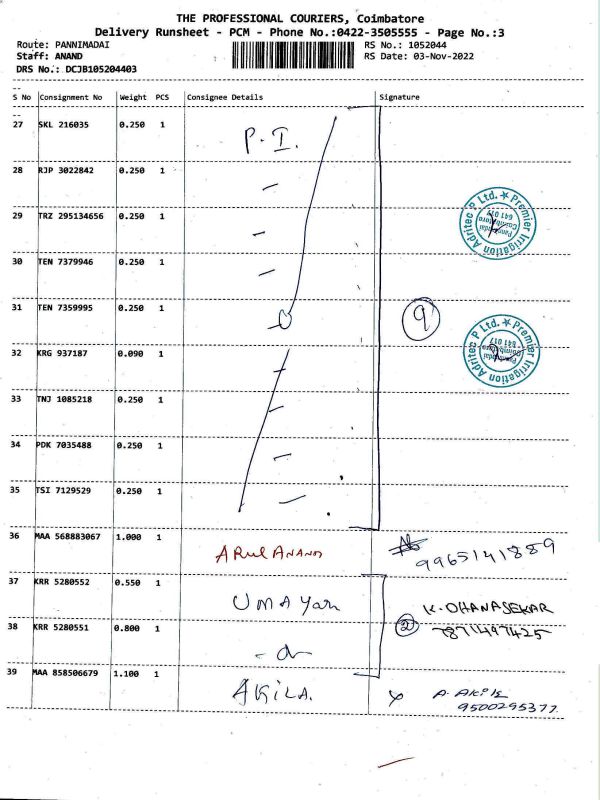 THE PROFESSIONAL COURIERS, Coimbatore
Delivery Runsheet - PCM - Phone No.:0422-3505555 - Page No.:3
Route: PANNIMADAI RS No.: 1052044
Staff: ANAND RS Date: 03-Nov-2022
DRS No.: DCJB105204403
S No Consignment No Weight PCS Consignee Details Signature
27 SKL 216035 0.250 1 P.I.
28 RJP 3022842 0.250 1
29 TRZ 295134656 0.250 1
Premier Irrigation Adritec P Ltd. Pannimadai Coimbatore 641 017
30 TEN 7379946 0.250 1
31 TEN 7359995 0.250 1
9
32 KRG 937187 0.090 1
Premier Irrigation Adritec P Ltd. Pannimadai Coimbatore 641 017
33 TNJ 1085218 0.250 1
34 PDK 7035488 0.250 1
35 TSI 7129529 0.250 1
36 MAA 568883067 1.000 1 ARUL ANAND 9965141889
37 KRR 5280552 0.550 1 UMAYAH K. DHANASEKAR
38 KRR 5280551 0.800 1 2 7871497425
39 MAA 858506679 1.100 1 AKILA. A. AKILA
9500295377